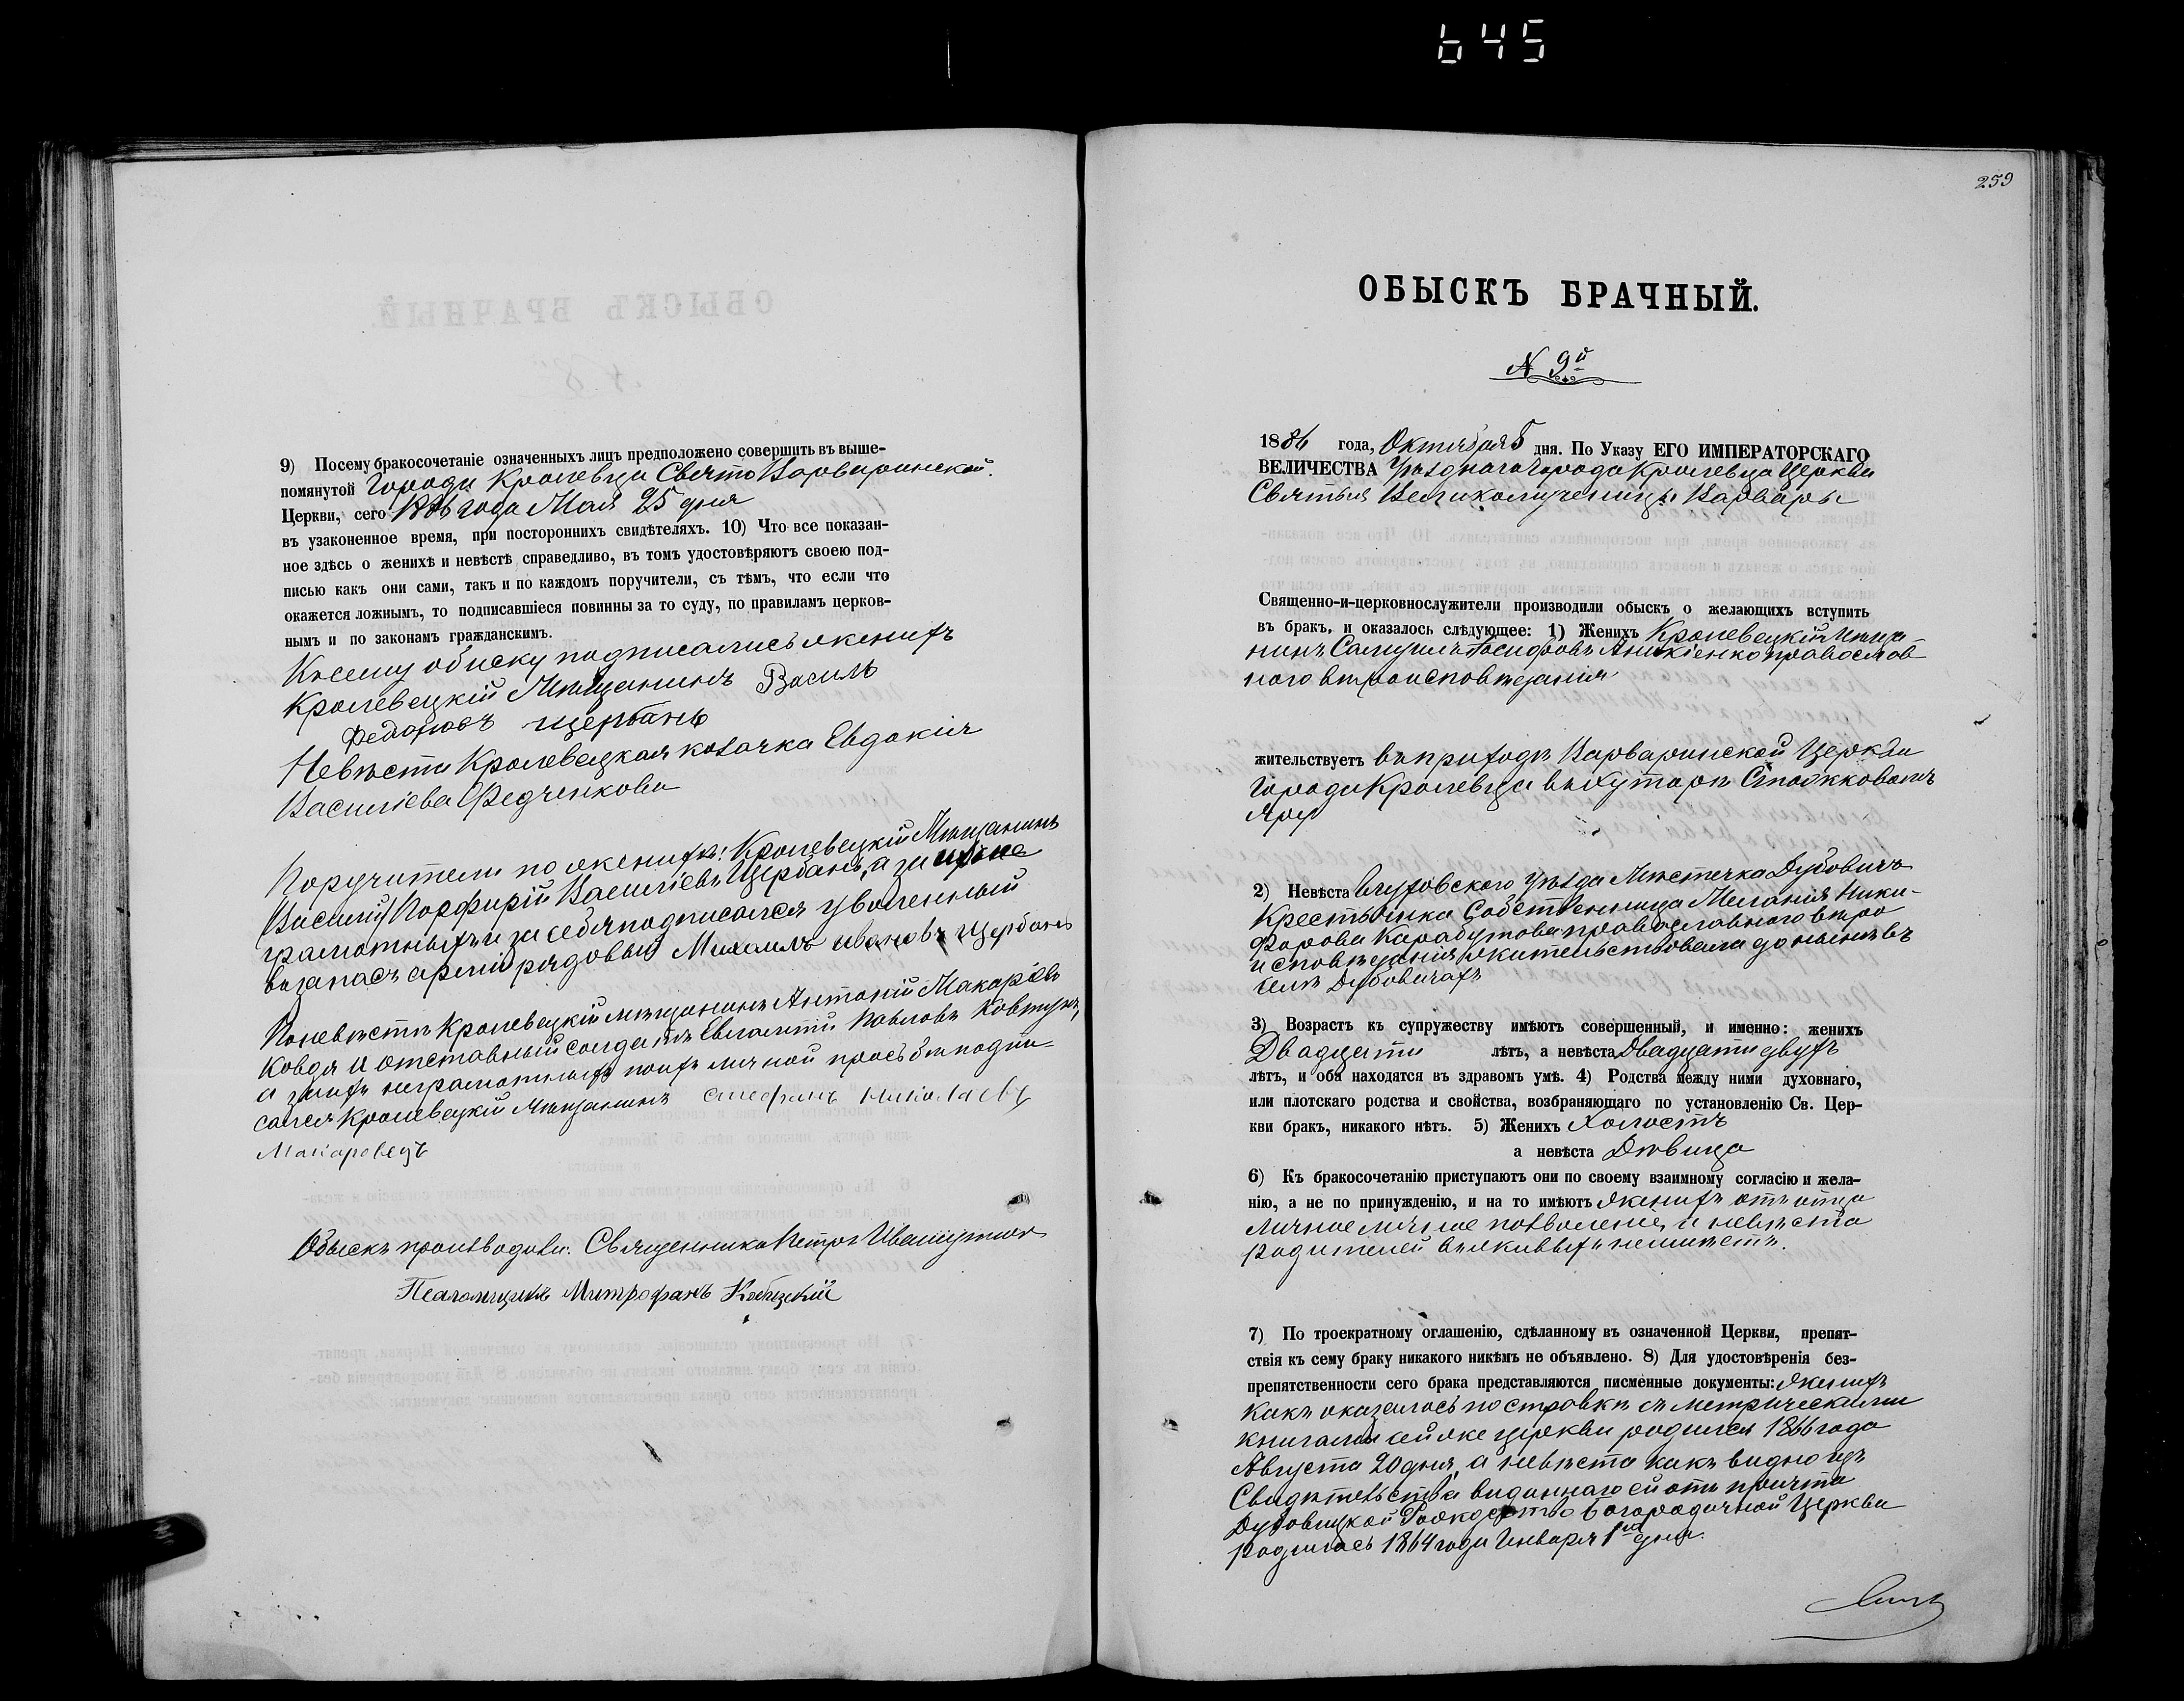 645
9) Посему бракосочетаніе означенныхъ лицъ предположено совершить въ выше-
помянутой Города Кролевца Свято Варваринской
Церкви, сего 1886 года Мая 25 дня
въ узаконенное время, при постороннихъ свидѣтеляхъ. 10) Что все показан-
ное здѣсь о женихѣ и невѣстѣ справедливо, въ томъ удостовѣряютъ своею под-
писью какъ они сами, такъ и по каждомъ поручители, съ тѣмъ, что если что
окажется ложнымъ, то подписавшіеся повинны за то суду, по правиламъ церков-
нымъ и по законамъ гражданскимъ.
Ксему обиску подписались женихъ
Кролевецкій Мѣщанинъ Василь
Федоровъ Щербань
Невѣста Кролевецкая козачка Евдокія
Василіева Федченкова
Поручители по женихѣ: Кролевецкій Мѣщанинъ
Василій Порфирій Василіевъ Щербань, а за
грамотныхъ и за себя подписался уволенный
въ запасъ арміи рядовый Михаилъ Ивановъ Щербань
По невѣстѣ Кролевецкій мѣщанинъ Антоній Макаріевъ
Ковдя и отставный солдатъ Евлампій Павловъ Ковтунъ,
а за ихъ неграмотныхъ по ихъ личной просьбѣ подпи-
сался Кролевецкій Мѣщанинъ Стефанъ Николаевъ
Макаровецъ
Обыскъ производили: Священникъ Петръ
Псаломщикъ Митрофанъ
259
ОБЫСКЪ БРАЧНЫЙ.
N 9й
1886 года, Октября 5 дня. По Указу ЕГО ИМПЕРАТОРСКАГО
ВЕЛИЧЕСТВА Уѣзднаго города Кролевца Церкви
Святыя Великомученицы Варвары
Священно-и-церковнослужители производили обыскъ о желающихъ вступить
въ бракъ, и оказалось слѣдующее: 1) Женихъ Кролевецкій Мѣща-
нинъ Самуилъ Іосифовъ Аникіенко православ-
ного вѣроисповѣданія
жительствуетъ въ приходѣ Варваринской Церкви
города Кролевца въ хуторѣ
Яру
2) Невѣста Глуховского Уѣзда Мѣстечка Дубовичъ
Крестьянка Собственница Меланія Ники-
форова Карабутова православного вѣро
исповѣданія жительствовала до нынѣ въ
селѣ Дубовичахъ
3) Возрастъ къ супружеству имѣютъ совершенный, и именно: женихъ
Двадцати лѣтъ, а невѣста Двадцати двухъ
лѣтъ, и оба находятся въ здравомъ умѣ. 4) Родства между ними духовнаго,
или плотскаго родства и свойства, возбраняющаго по установленію Св. Цер-
кви бракъ, никакого нѣтъ. 5) Женихъ Холостъ
а невѣста Дѣвица
6) Къ бракосочетанію приступаютъ они по своему взаимному согласію и жела-
нію, а не по принужденію, и на то имѣютъ женихъ отъ отца
личное личное позволеніе, и невѣста
родителей въ живыхъ неимѣетъ.
7) По троекратному оглашенію, сдѣланному въ означенной Церкви, препят-
ствія къ сему браку никакого никѣмъ не объявлено. 8) Для удостовѣренія без-
препятственности сего брака представляются писменные документы: женихъ
какъ оказалось по справкѣ съ метрическими
книгами сей же церкви родился 1866 года
Августа 20 дня, а невѣста какъ видно изъ
Свидѣтельства виданнаго ей отъ причта
Дубовицкой Рождество Богородичной Церкви
родилась 1864 года Января 1го дня.